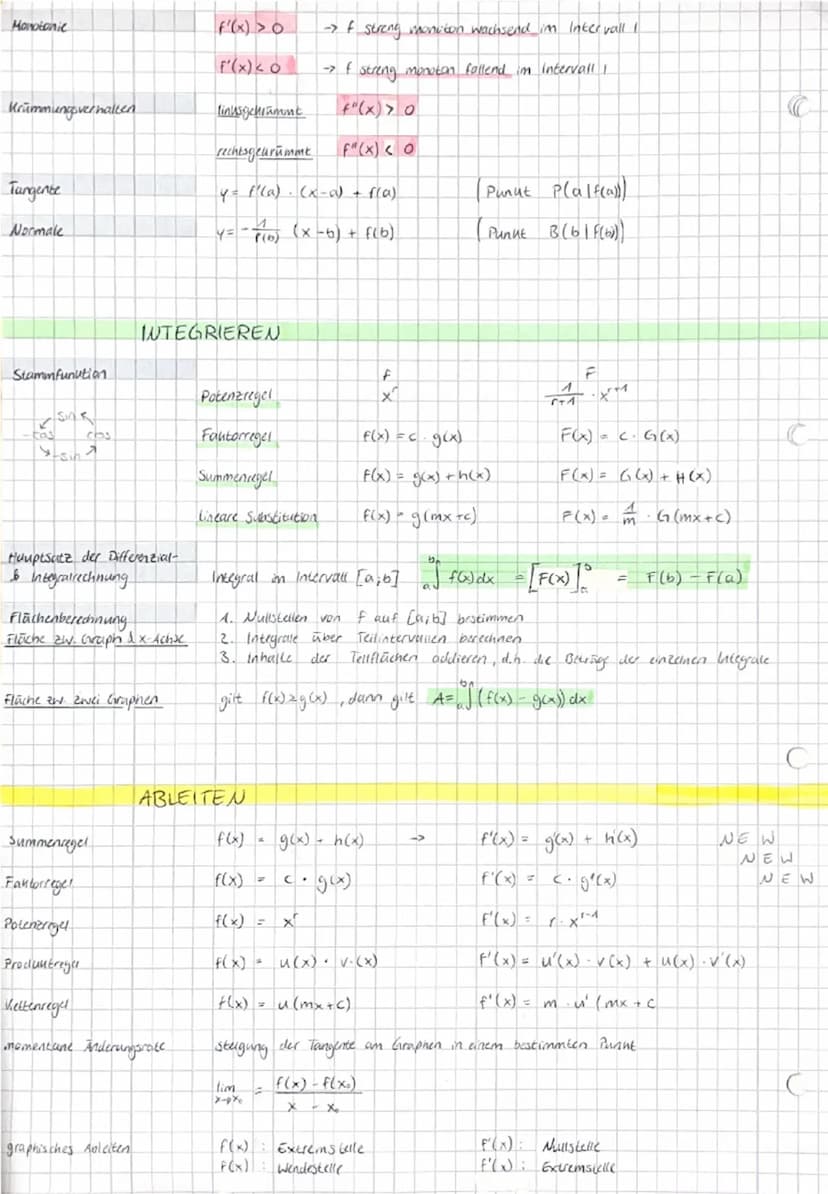 Monotonie f'(x) > 0 → f streng monoton wachsend im Intervall I
f'(x) < 0 → f streng monoton fallend im Intervall I
Krümmungsverhalten linksgekrümmt f"(x) > 0
rechtsgekrümmt f"(x) < 0
Tangente y = f'(a) · (x-a) + f(a) (Punkt P(a|f(a))
Normale y = - 1/f'(b) (x-b) + f(b) (Punkt B(b|f(b))
INTEGRIEREN
Stammfunktion f F
Potenzregel x^r 1/(r+1) · x^(r+1)
sin
-cos cos
-sin
Faktorregel f(x) = c · g(x) F(x) = c · G(x)
Summenregel f(x) = g(x) + h(x) F(x) = G(x) + H(x)
lineare Substitution f(x) = g(mx+c) F(x) = 1/m · G(mx+c)
Hauptsatz der Differenzial-
& Integralrechnung Integral im Intervall [a;b] a∫b f(x) dx = [F(x)]_a^b = F(b) - F(a)
Flächenberechnung 1. Nullstellen von f auf [a;b] bestimmen
Fläche zw. Graph & x-Achse 2. Integrale über Teilintervallen berechnen
3. Inhalte der Teilflächen addieren, d.h. die Beträge der einzelnen Integrale
Fläche zw. zwei Graphen gilt f(x) ≥ g(x), dann gilt A = a∫b (f(x) - g(x)) dx
ABLEITEN
Summenregel f(x) = g(x) + h(x) → f'(x) = g'(x) + h'(x) NEW
NEW
Faktorregel f(x) = c · g(x) f'(x) = c · g'(x) NEW
Potenzregel f(x) = x^r f'(x) = r · x^(r-1)
Produktregel f(x) = u(x) · v·(x) f'(x) = u'(x) · v(x) + u(x) · v'(x)
Kettenregel f(x) = u(mx+c) f'(x) = m · u'(mx+c
momentane Änderungsrate Steigung der Tangente am Graphen in einem bestimmten Punkt
lim x→x₀ = (f(x) - f(x₀))/(x - x₀)
graphisches Ableiten f(x) : Extremstelle f'(x) : Nullstelle
f(x) : Wendestelle f'(x) : Extremstelle